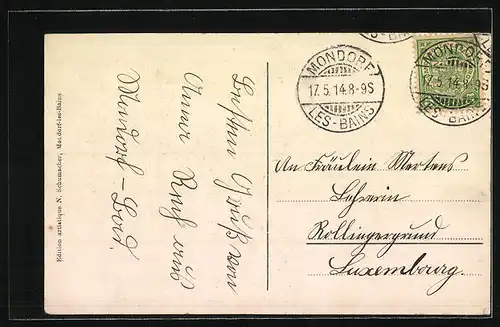 Edition artistique N. Schumacher, Mondorf-les-Bains
Besten Gruß von
Anna Ruf aus
Mondorf-Bad.
MONDORF
17.5.14.8-9S
LES-BAINS
MONDORF
17.5.14.8-9S
LES-BAINS
S-BAINS
An Fräulein Mertens
Lehrerin
Rollingergrund
Luxembourg.